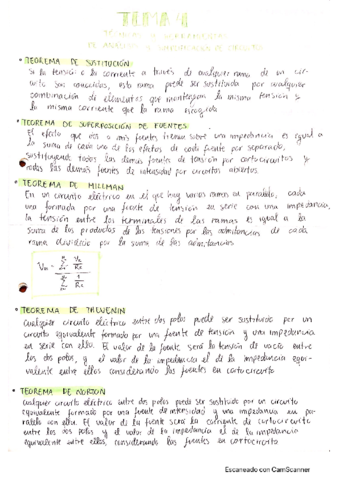 TEMA 4
TÉCNICAS DE
DE ANÁLISIS Y SIMPLIFICACIÓN DE CIRCUITOS
• TEOREMA DE SUSTITUCIÓN:
Si la tensión o la corriente a través de cualquier rama de un cir-
cuito son conocidas, esta rama puede ser sustituida por cualquier
combinación de elementos que mantengan la misma tensión y
la misma corriente que la rama escogida
• TEOREMA DE SUPERPOSICIÓN DE FUENTES:
El efecto que dos o más fuentes tienen sobre una impedancia es igual a
la suma de cada uno de los efectos de cada fuente por separado,
sustituyendo todas las demás fuentes de tensión por cortocircuitos y
todas las demás fuentes de intensidad por circuitos abiertos.
• TEOREMA DE MILLMAN
En un circuito eléctrico en el que hay varias ramas en paralelo, cada
una formada por una fuente de tensión en serie con una impedancia,
la tensión entre los terminales de las ramas es igual a la
suma de los productos de las tensiones por las admitancias de cada
rama dividido por la suma de las admitancias
• TEOREMA DE THEVENIN
Cualquier circuito eléctrico entre dos polos puede ser sustituido por un
circuito equivalente formado por una fuente de tensión y una impedancia
en serie con ella. El valor de la fuente será la tensión de vacío entre
los dos polos, y el valor de la impedancia el de la impedancia equi-
valente entre ellos considerando las fuentes en cortocircuito
• TEOREMA DE NORTON
Cualquier circuito eléctrico entre dos polos puede ser sustituido por un circuito
equivalente formado por una fuente de intensidad y una impedancia en pa-
ralelo con ella. El valor de la fuente será la corriente de cortocircuito
entre los dos polos y el valor de la impedancia el de la impedancia
equivalente entre ellos, considerando las fuentes en cortocircuito
Escaneado con CamScanner